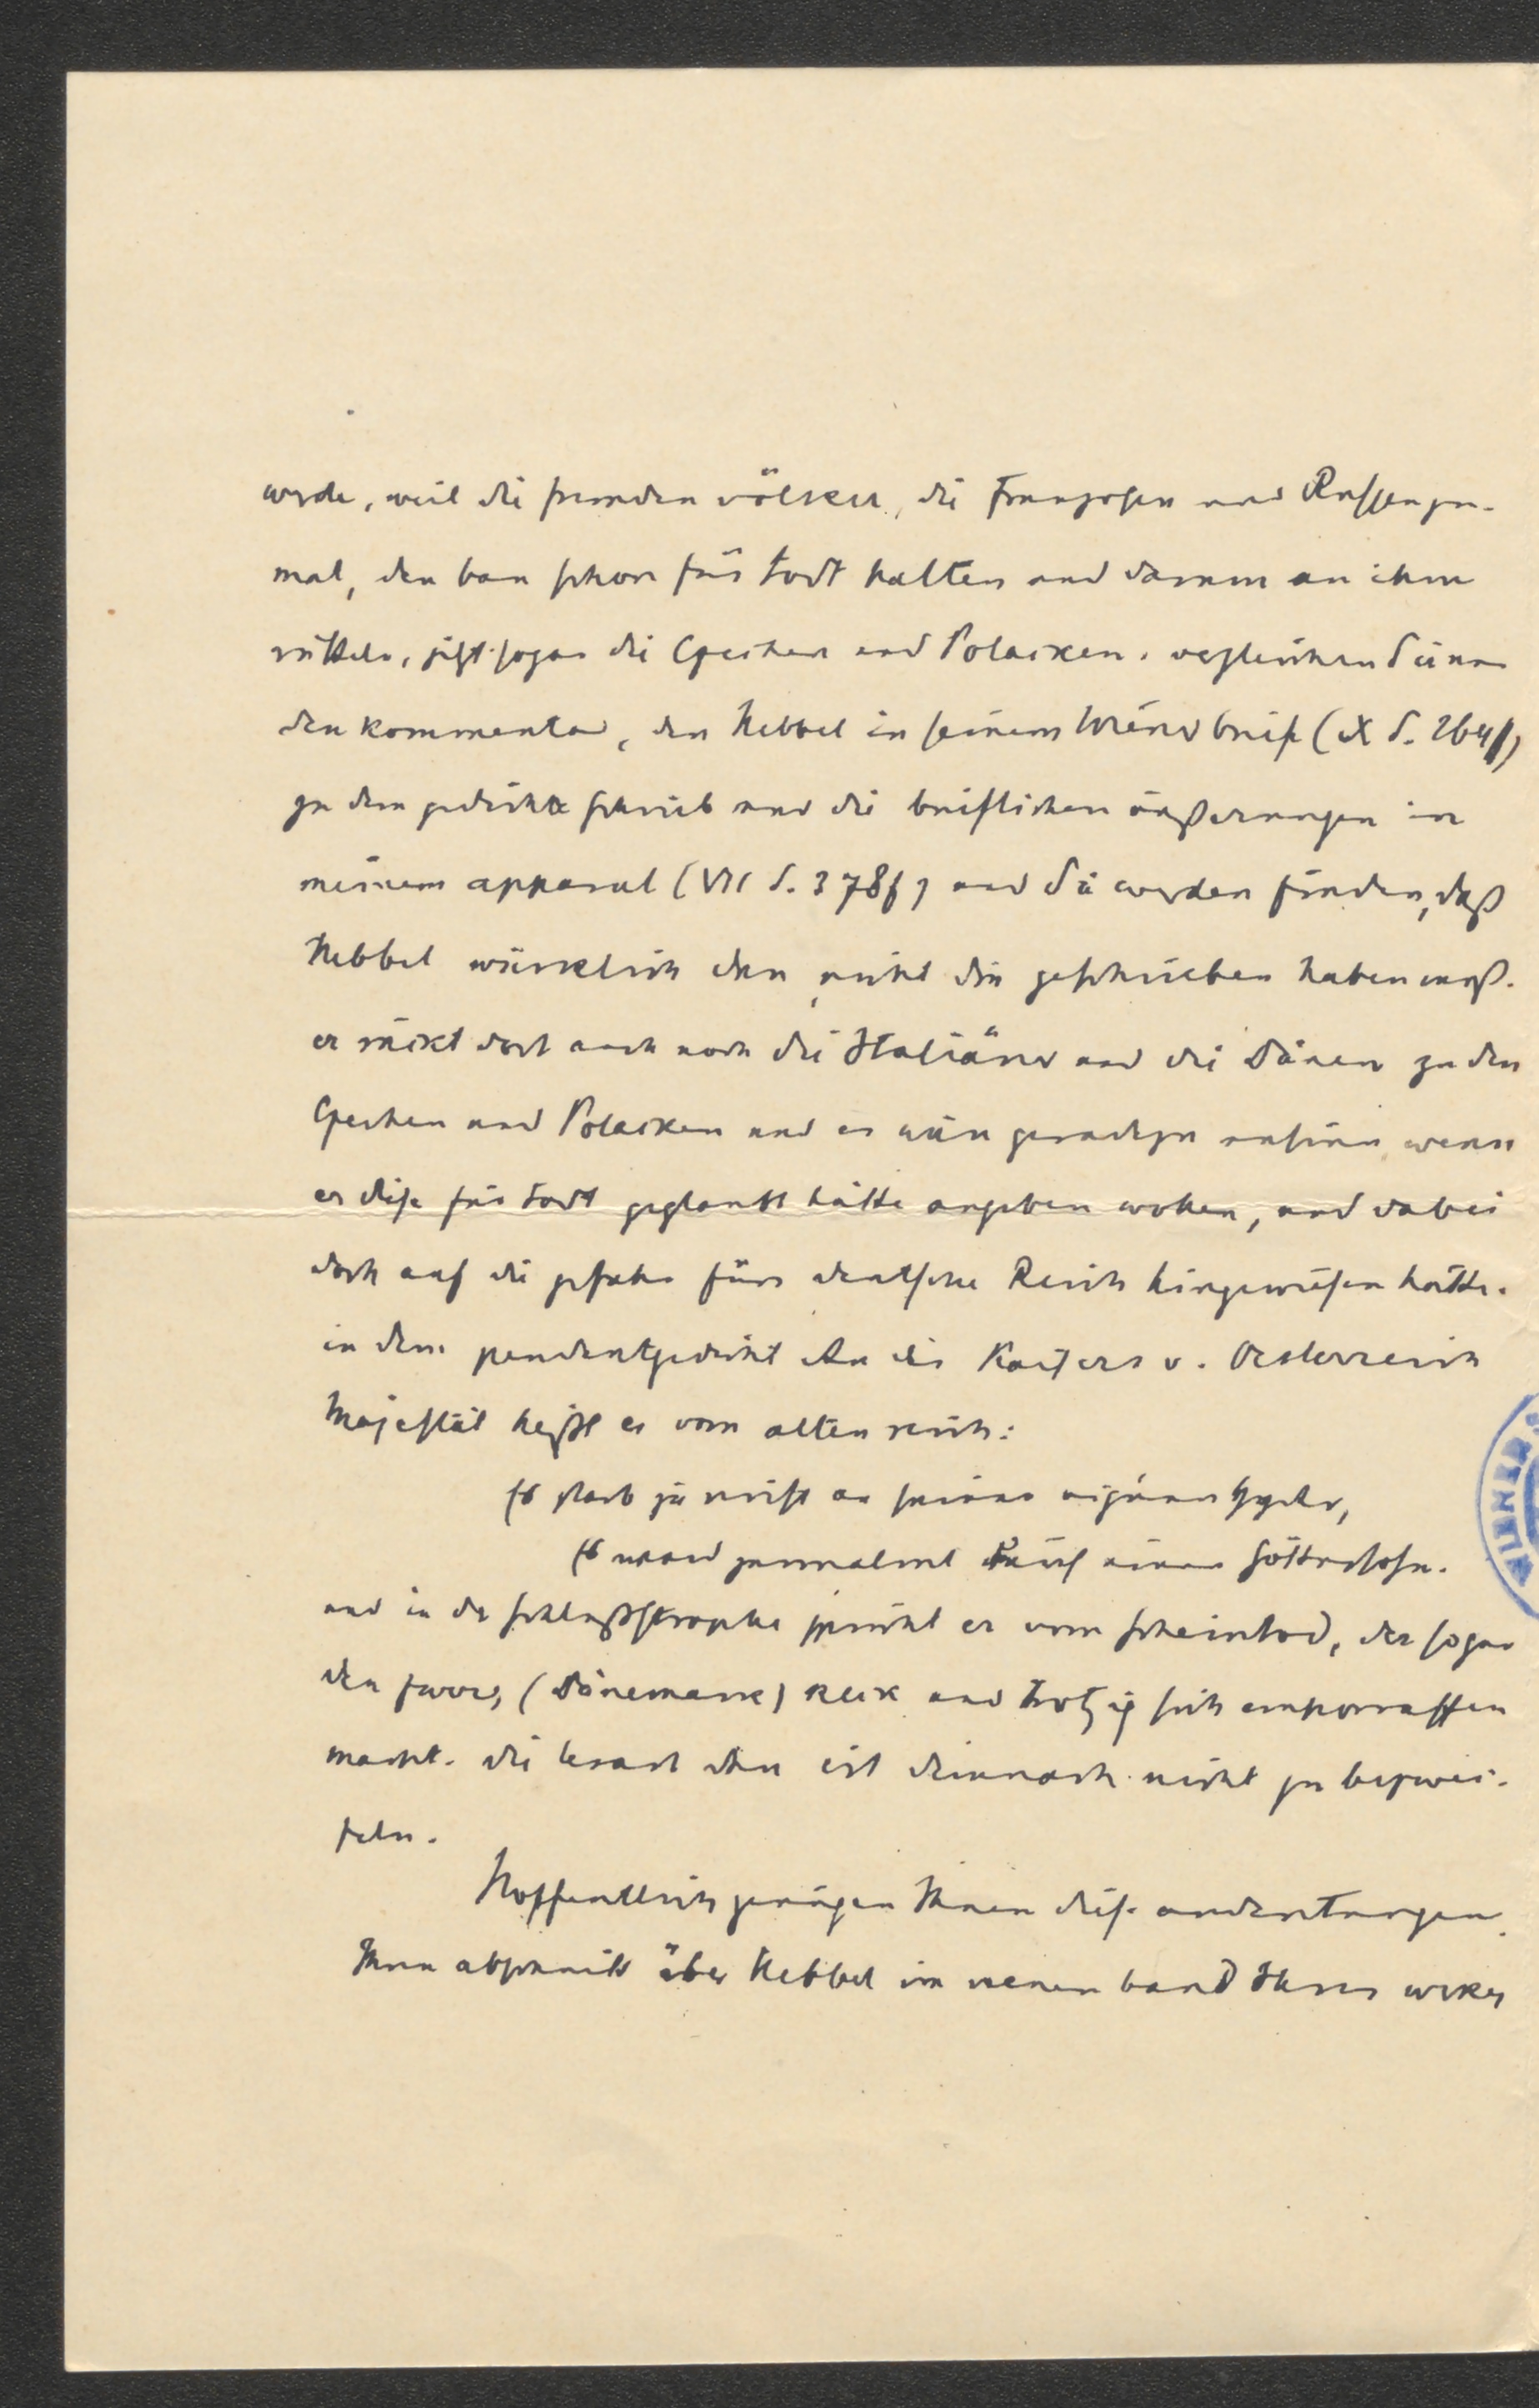 werde, weil die fremden völker, die Franzosen und Russen zu-
mal, den bau schon für todt halten und darum an ihm
rütteln, jetzt sogar die Czechen und Polacken. vergleichen Sie nur
den kommentar, den Hebbel in seinem Wiener brief (X S. 264f)
zu dem gedichte schrieb und die brieflichen äußerungen in
meinem apparat (VII S. 378f) und Sie werden finden, daß
Hebbel würklich den, nicht die geschrieben haben muß.
er rückt dort auch noch die Italiäner und die Dänen zu den
Czechen und Polacken und es wäre geradezu unsinn, wenn
er diese für todt geglaubt hätte ausgeben wollen, und dabei
doch auf die gefahr fürs deutsche Reich hingewiesen hätte.
in dem pendentgedicht An des Kaisers v. Oesterreich
Majestät heißt es vom alten reich:
Es starb ja nicht an seinem eignen
Es ward zermalmt durch einen Göttersohn.
und in der schlußstrophe spricht er vom scheintod, der sogar
den zwerg (Dänemark) keck und trotzig sich emporraffen
macht. die lesart den ist demnach nicht zu bezwei-
feln.
Hoffentlich genügen Ihnen diese andeutungen.
Ihren abschnitt über Hebbel im neuen band Ihres werkes
WIENER